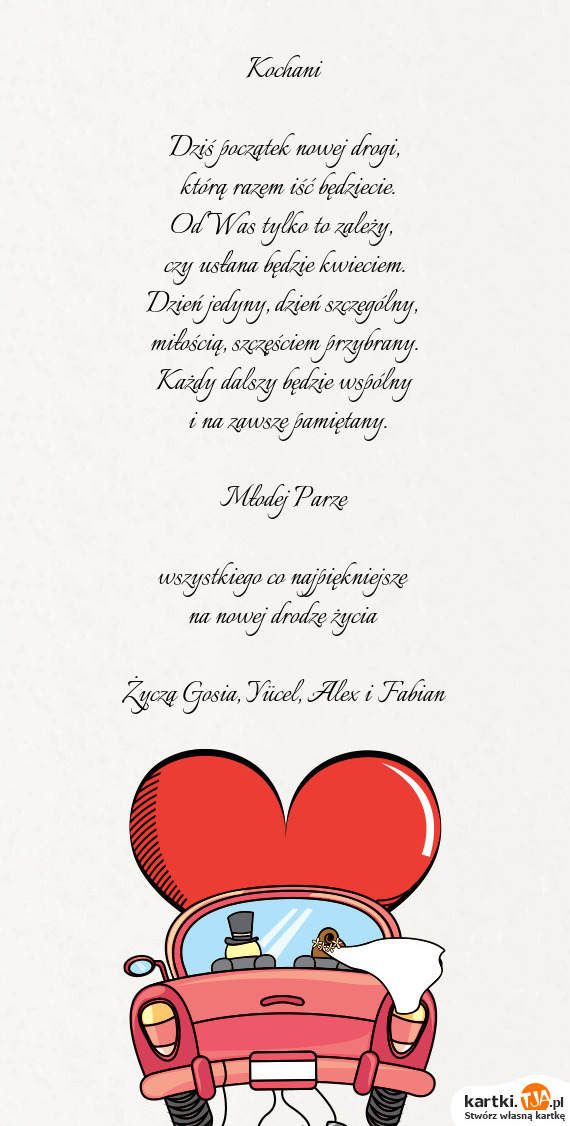 Kochani
Dziś początek nowej drogi,
którą razem iść będziecie.
Od Was tylko to zależy,
czy usłana będzie kwieciem.
Dzień jedyny, dzień szczególny,
miłością, szczęściem przybrany.
Każdy dalszy będzie wspólny
i na zawsze pamiętany.
Młodej Parze
wszystkiego co najpiękniejsze
na nowej drodze życia
Życzą Gosia, Yücel, Alex i Fabian
kartki.TJA.pl
Stwórz własną kartkę